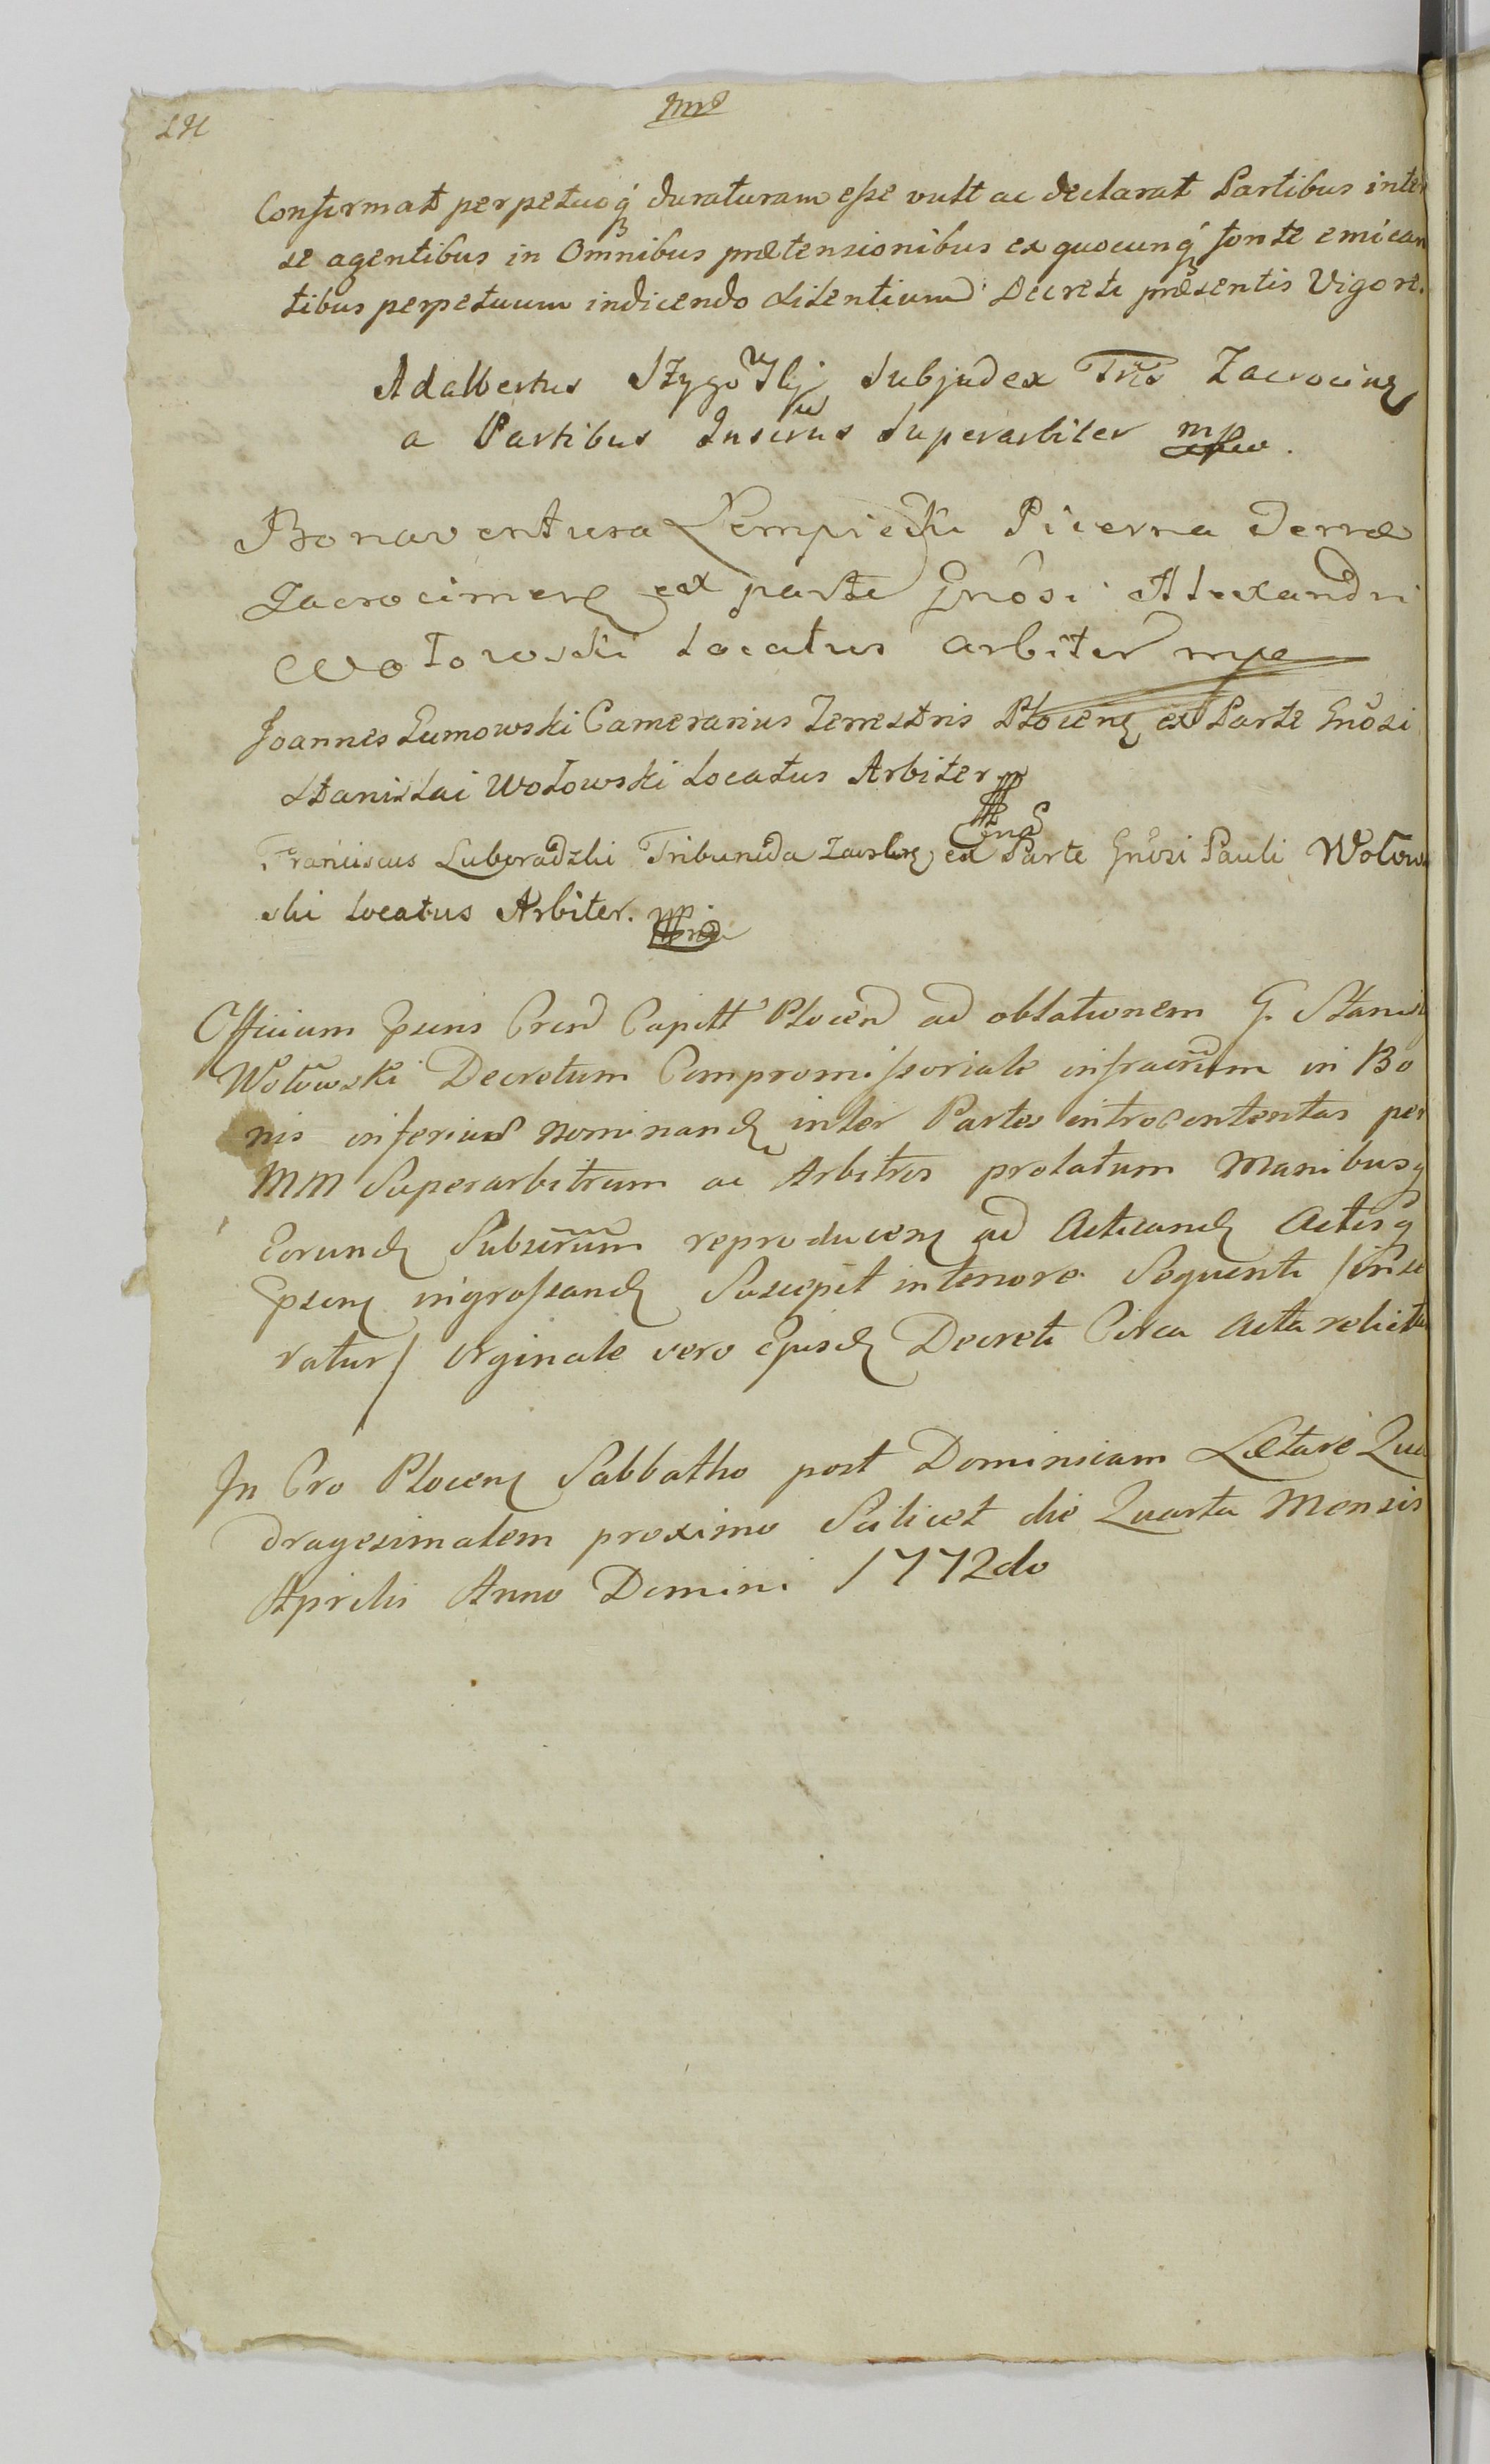 Confirmat perpetuoq duraturam esse vult ac declarat Partibus inter
se agentibus in Omnibus prætensionibus ex quocunq fonte emican
tibus perpetuum indicendo silentium Decreti præsentis Vigore.
Adalbertus Subjudex Tris Zacrocimen
a Partibus Superarbiter mp
Bonaventura Lempicki Picerna Terræ
Zacrocimen ex parte Gnosi Alexandri
Wołowski Locatus arbiter mp
Joannes Gumowski Camerarius Terrestris Płocen ex Parte Gnosi
Stanislai Wołowski Locatus Arbiter mp
Franciscus Luboradzki Tribunida Zawskrz ex Parte Gnosi Pauli Wołow
ski Locatus Arbiter. mp
Officium psens Capitt Plocen ad oblationem G. Stanisl
Wołowski Decretum Compromissoriale infrascriptum in Bo
nis inferius nominand inter Partes introcontentas per
MM Superarbitrum ac Arbitros prolatum Manibusq
Eorund Subscrum reproducen ad Acticand Actisq
psen ingrossand Suscepit in tenore Sequenti /inse
ratur/ Orginale vero Ejusd Decreti Circa Acta relictu
In Cro Plocen Sabbatho post Dominicam Lætare Qua
dragesimalem proximo Scilicet die Quarta Mensis
Aprilis Anno Domini 1772do